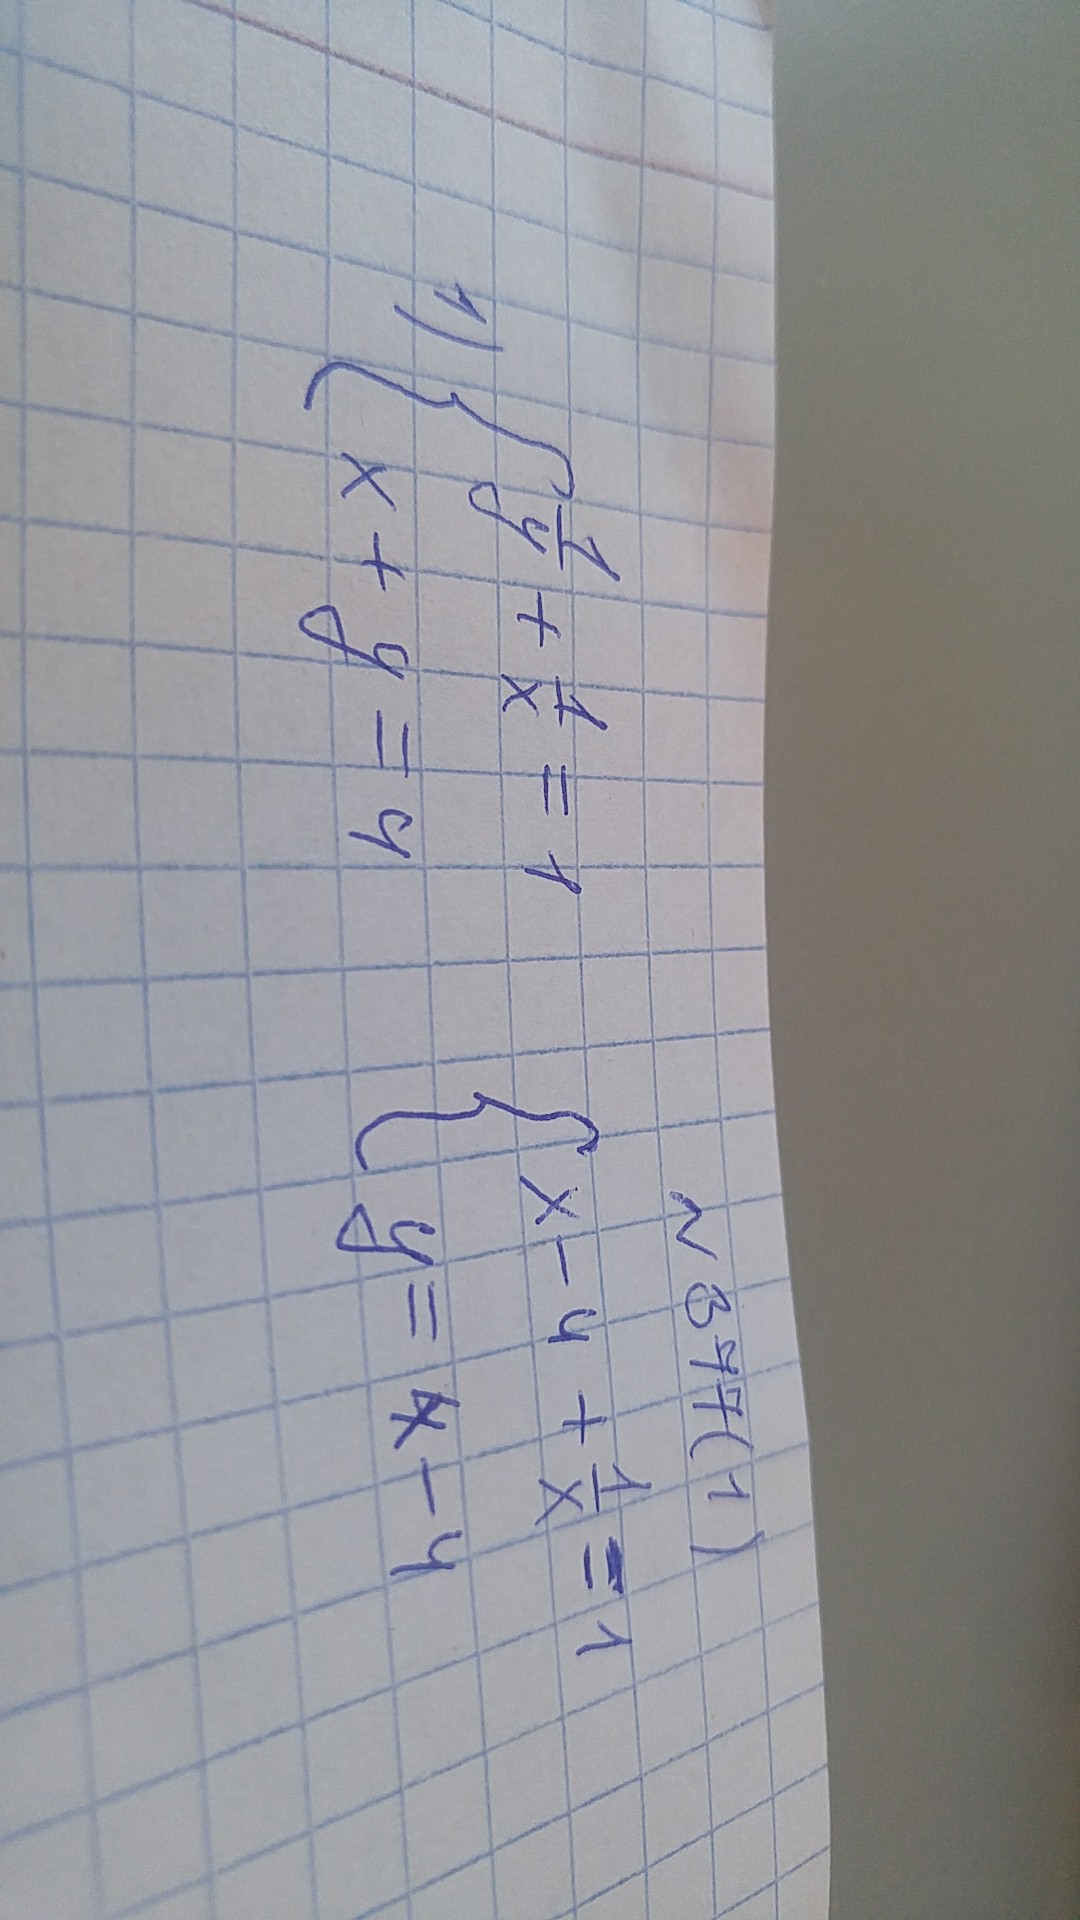 N 347(1)
1) { 1/y + 1/x = 1
x + y = 4
{ x - 4 + 1/x = 1
y = x - 4